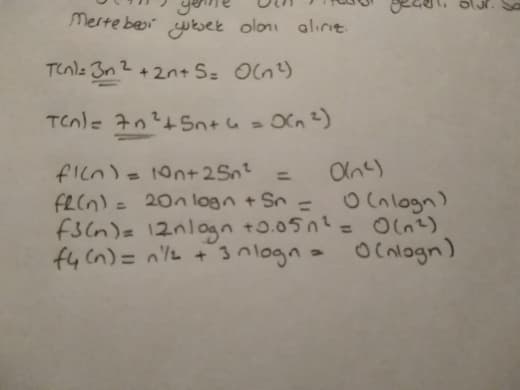 yerine
Mertebesi yüksek olanı alırız.
T(n)= 3n² + 2n + 5 = O(n²)
T(n) = 7n² + 5n + 4 = O(n²)
f1(n) = 10n + 25n² = O(n²)
f2(n) = 20nlogn + 5n = O(nlogn)
f3(n) = 12nlogn + 0.05n² = O(n²)
f4(n) = n½ + 3nlogn = O(nlogn)